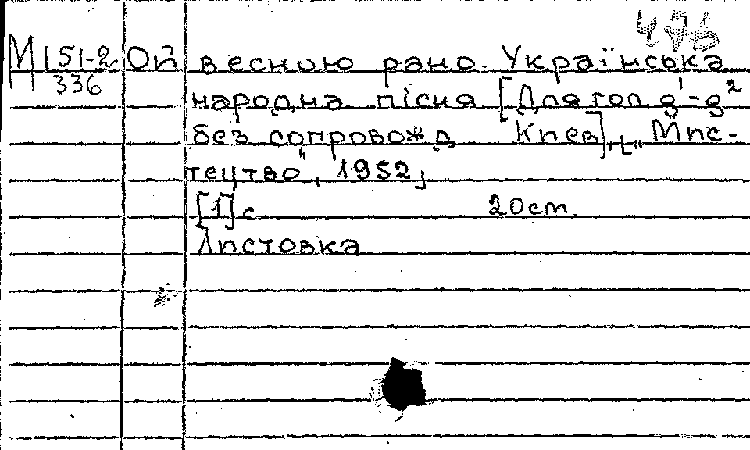 М 151-2 Ой весною рано. Українська
336
народна пісня [Для гол g¹-g²
без сопровожд Киев], „Мис-
тецтво", 1952,
[1] с 20 cm.
Листовка